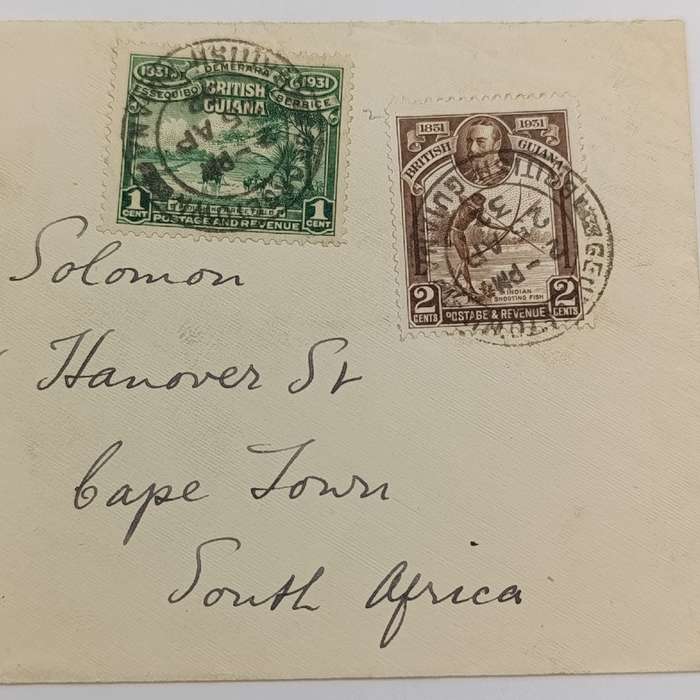 1831 DEMERARA 1931
ESSEQUIBO BRITISH BERBICE
GUIANA
1 CENT 1 CENT
POSTAGE AND REVENUE
1831 1931
BRITISH GUIANA
INDIAN
SHOOTING FISH
2 CENTS 2 CENTS
POSTAGE & REVENUE
2 - PM
AP
32
BRITISH GUIANA
Solomon
Hanover St
Cape Town
South Africa